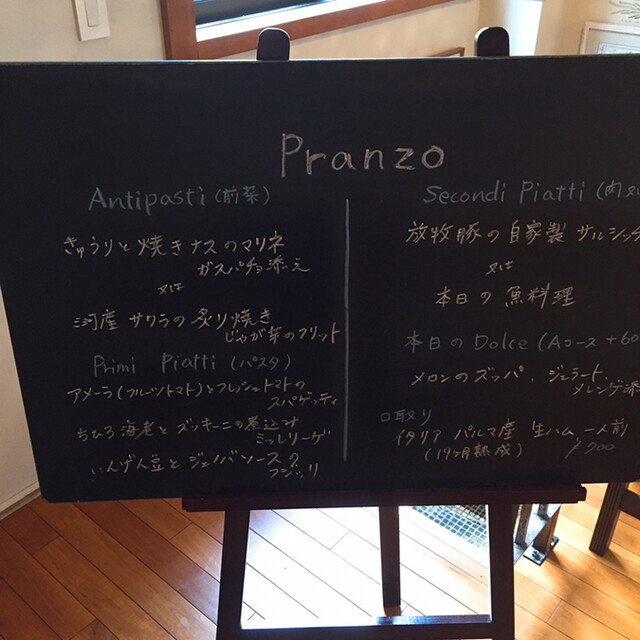 Pranzo
Antipasti (前菜)
きゅうりと焼きナスのマリネ
ガスパチョ添え
又は
河産 サワラの炙り焼き
じゃが芋のフリット
Primi Piatti (パスタ)
アメーラ(フルーツトマト)とフレッシュトマトの
スパゲッティ
海老とズッキーニの煮込み
ミッレリーゲ
いんげん豆とジェノバソースの
フジッリ
Secondi Piatti (肉又
放牧豚の自家製サルシッチ
又は
本日の魚料理
本日のDolce (Aコース +60
メロンのズッパ、ジェラート、
メレンゲ添
口取り
イタリア パルマ産 生ハム 一人前
(19ヶ月熟成) ¥700